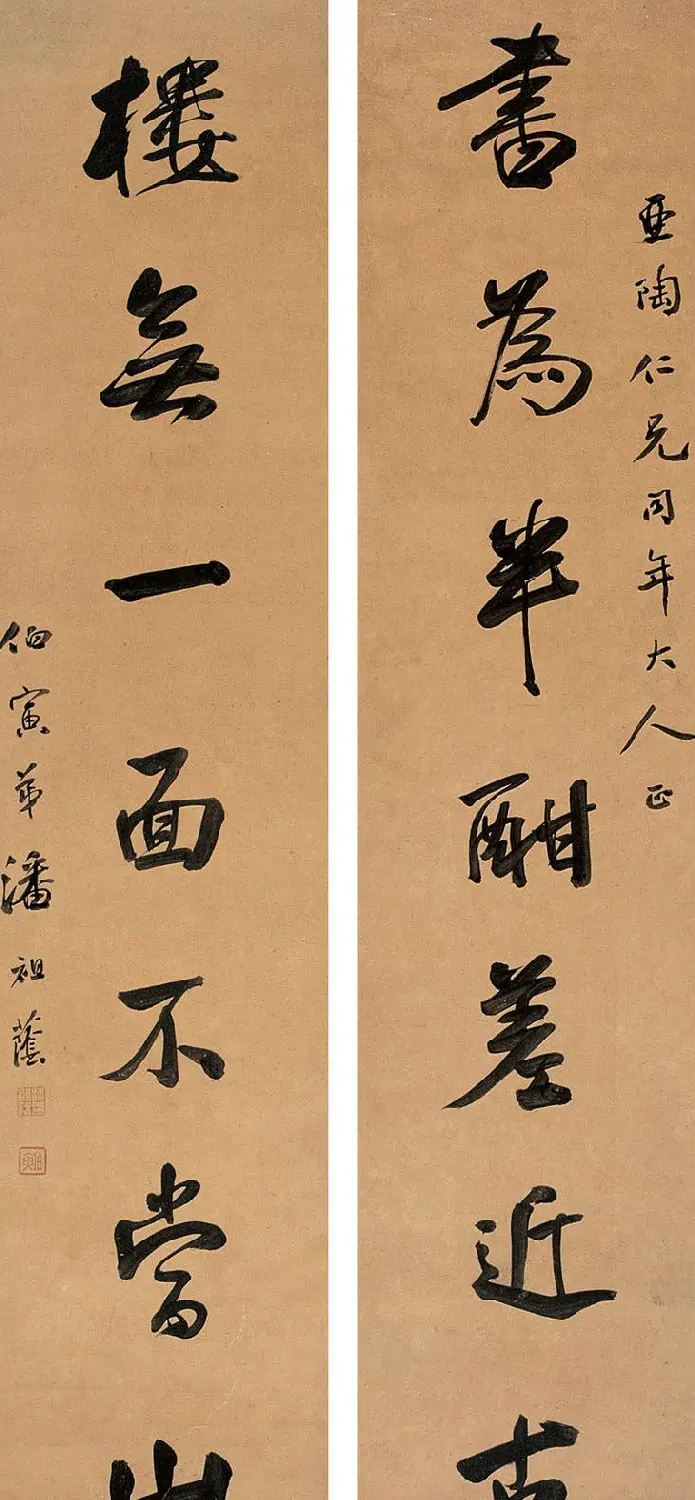 亞陶仁兄同年大人正
書為半酣差近古
樓無一面不當山
伯寅弟潘祖蔭